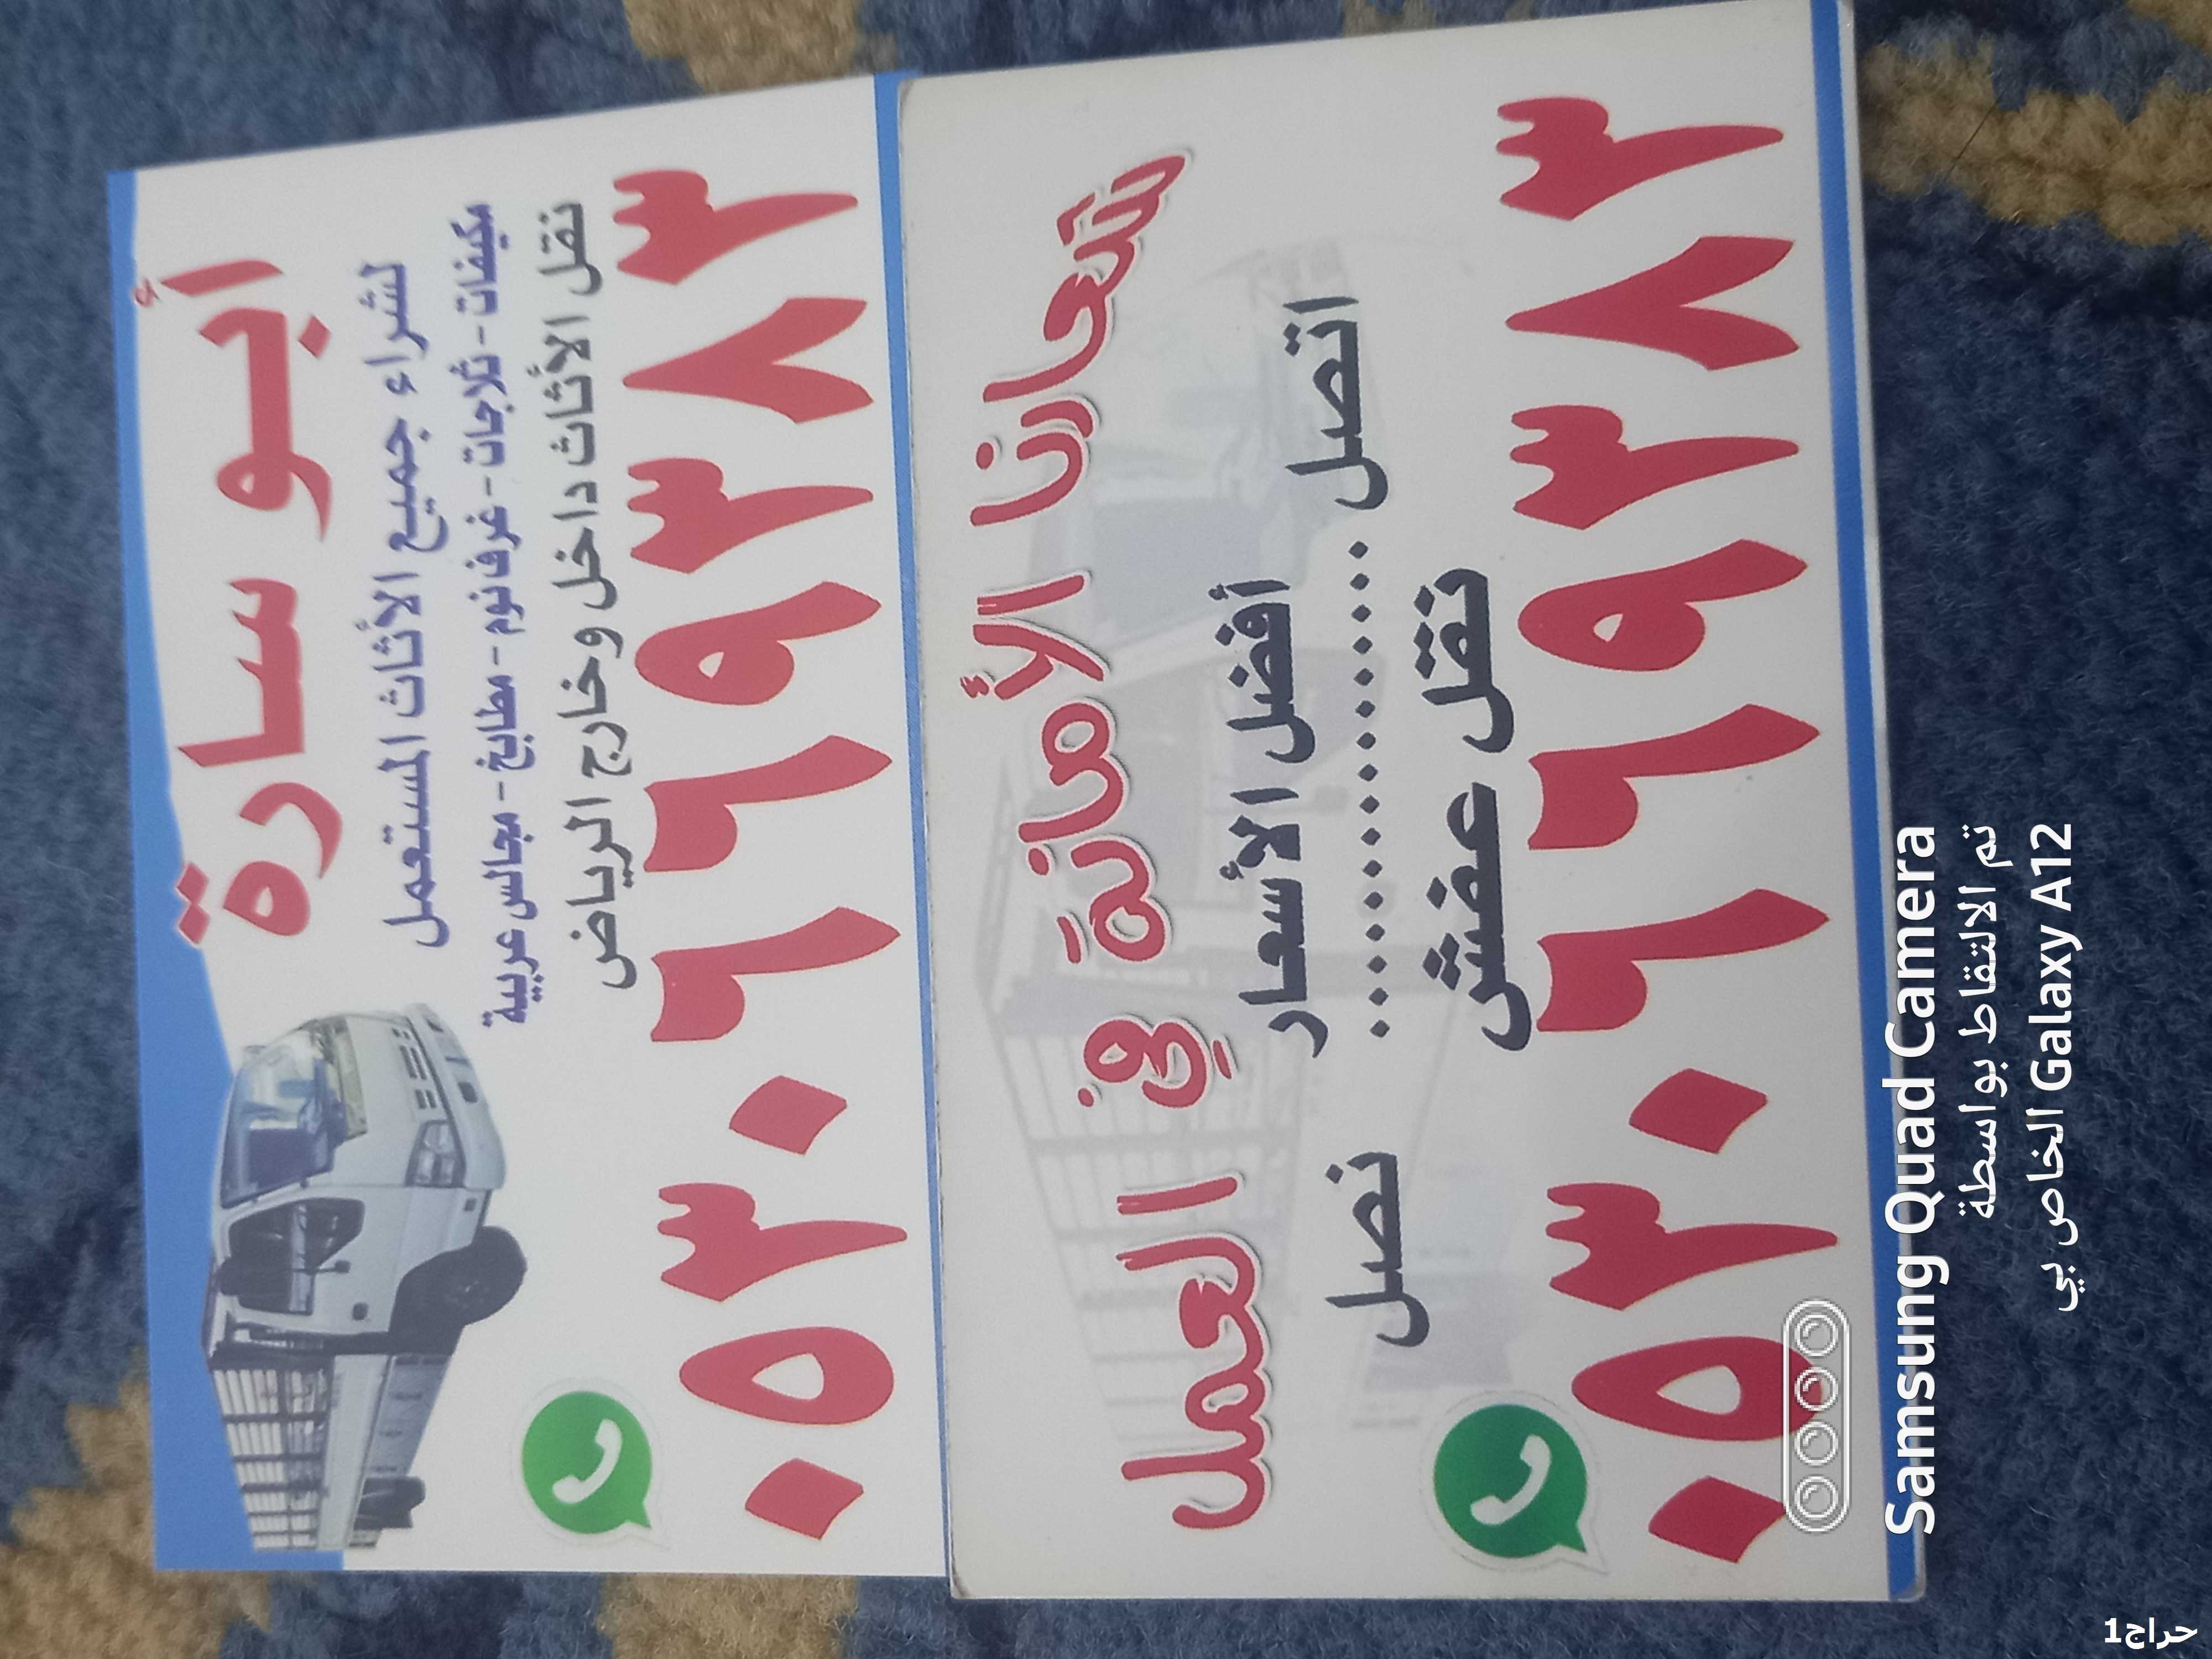 أبو سارة
لشراء جميع الأثاث المستعمل
مكيفات - ثلاجات - غرف نوم - مطابخ - مجالس عربية
نقل الأثاث داخل وخارج الرياض
٠٥٣٠٦٦٩٣٨٣
شعارنا الأمانة في العمل
أفضل الأسعار
اتصل .................. نصل
نقل عفش
٠٥٣٠٦٦٩٣٨٣
Samsung Quad Camera
تم الالتقاط بواسطة
الخاص بي Galaxy A12
حراج1